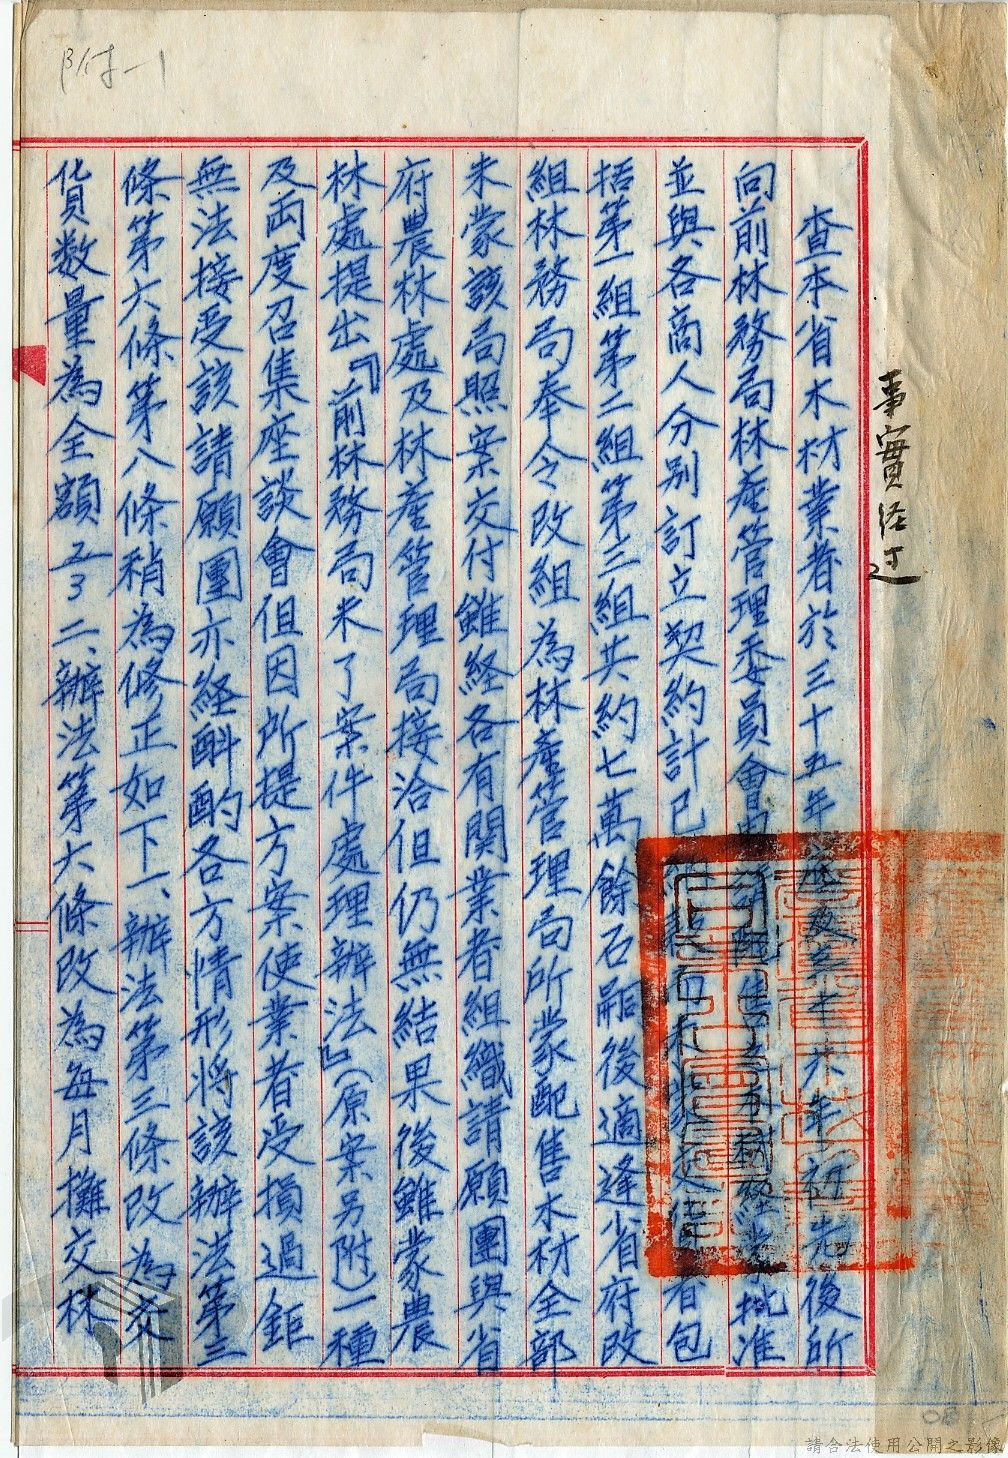 附-1
事實經过
查本省木材業者於三十五年度及至卅六年初先後所
向前林務局林產管理委員會申請配售木材經奉批准
並與各商人分別訂立契約計已者包
括第一組第二組第三組共約七萬餘石嗣後適逢省府改
組林務局奉令改組為林產管理局所蒙配售木材全部
未蒙該局照案交付雖経各有関業者組織請願團與省
府農林處及林產管理局接洽但仍無結果後雖蒙農
林處提出『前林務局未了案件處理辦法』(原案另附)一種
及両度召集座談會但因所提方案使業者受損過鉅
無法接受該請願團亦経酙酌各方情形将該辦法第三
條第六條第八條稍為修正如下一、辦法第三條改為交
貨数量為全額五〻二、辦法第六條改為每月攤交林
請合法使用公開之影像